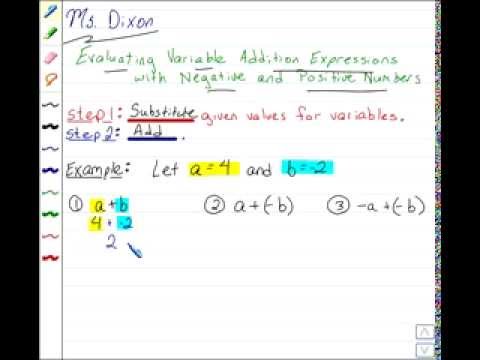 Ms. Dixon
Evaluating Variable Addition Expressions
with Negative and Positive Numbers
Step 1: Substitute given values for variables.
Step 2: Add.
Example: Let a = 4 and b = -2
① a + b ② a + (-b) ③ -a + (-b)
4 + -2
2